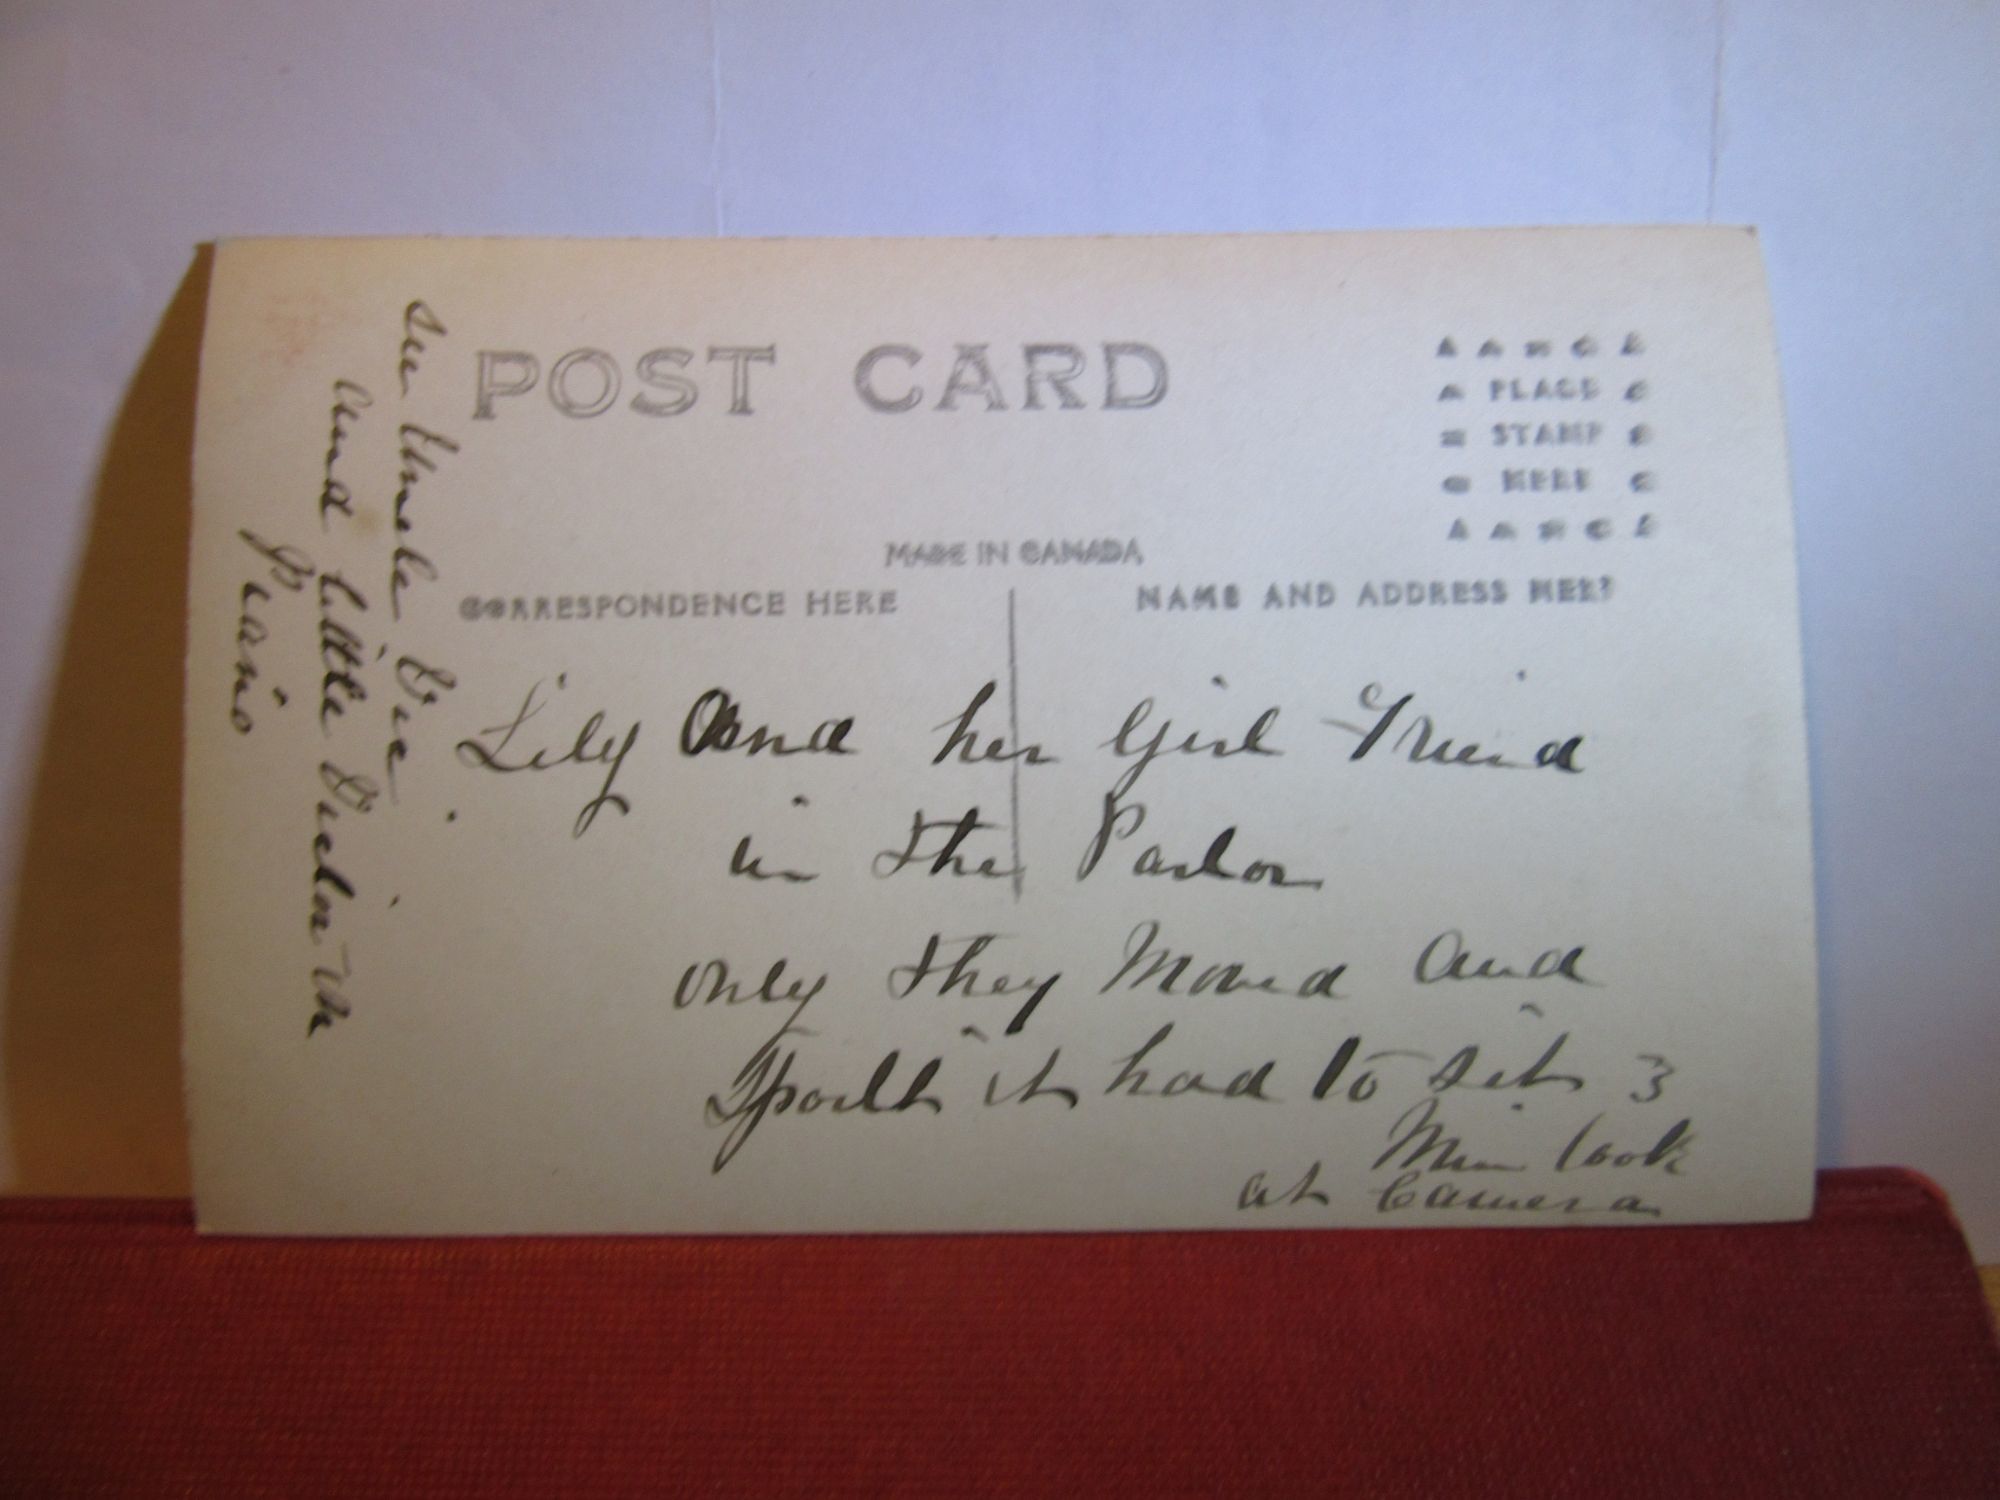 POST CARD
PLACE
STAMP
HERE
MADE IN CANADA
CORRESPONDENCE HERE
NAME AND ADDRESS HERE
Lily And her Girl Friend
in the Parlor
only they Moved and
Spoilt it had to sit 3
Min look
at Camera
see Uncle Vic
and little Victor on
Piano